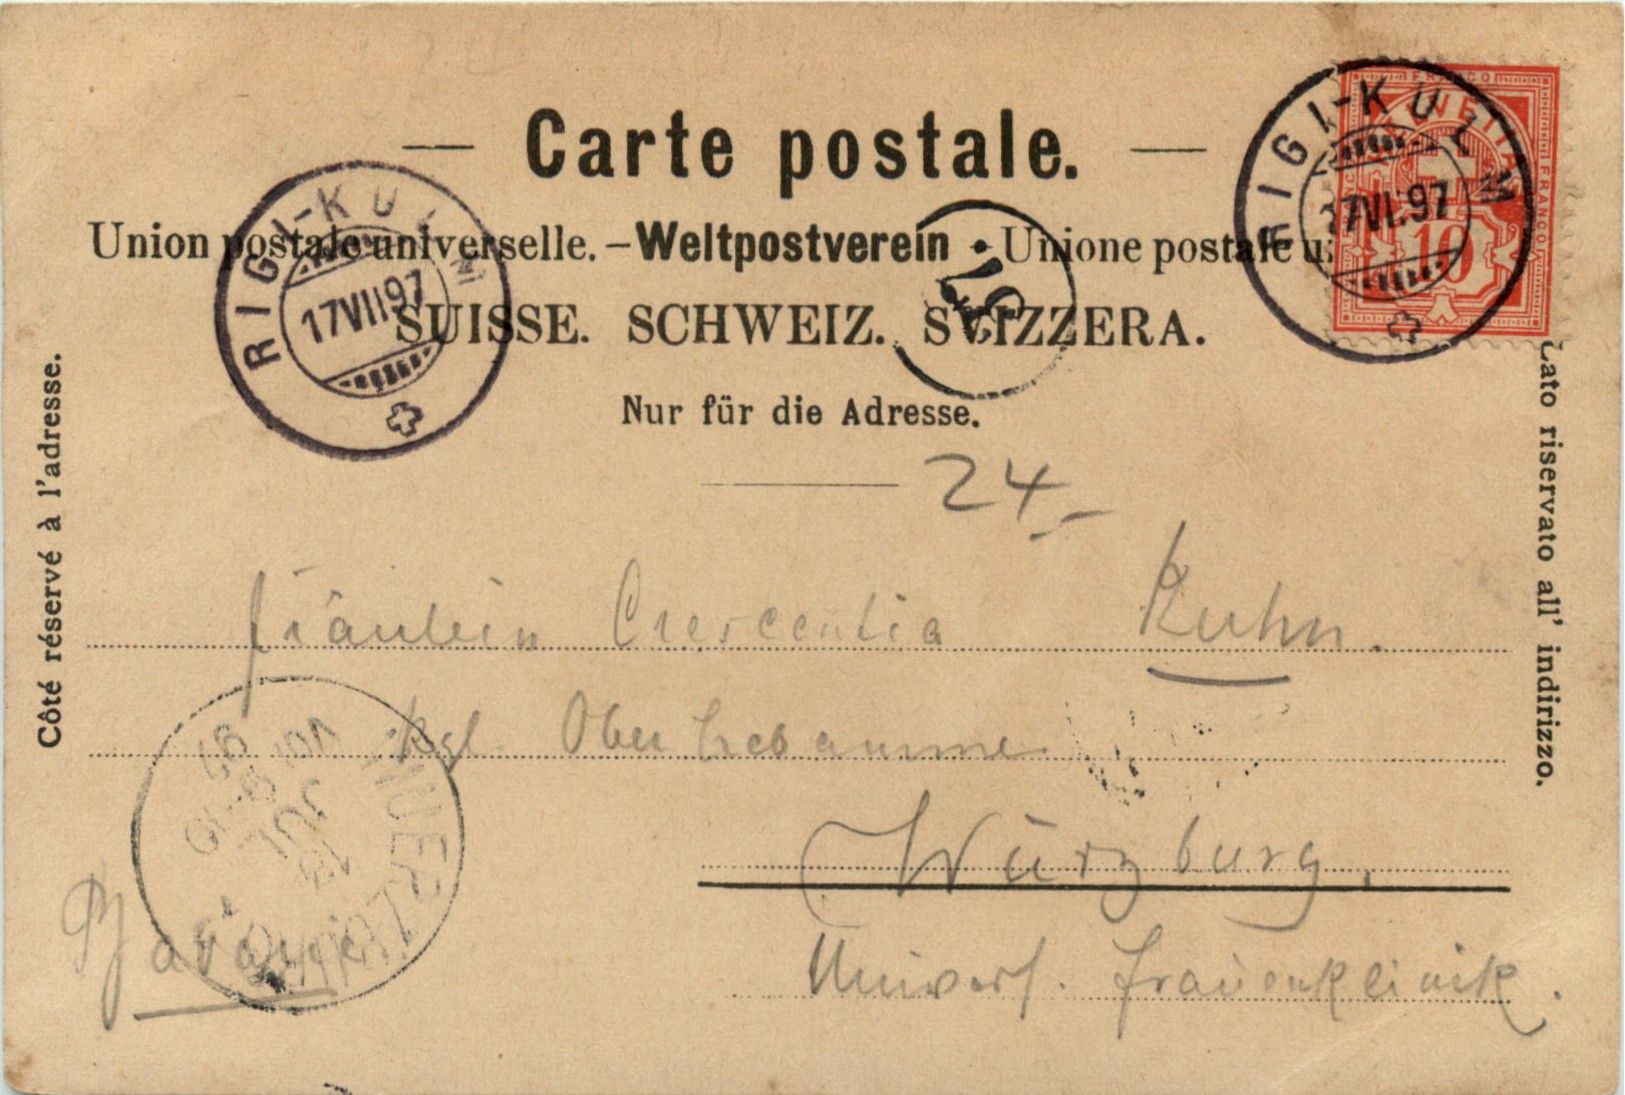 Carte postale.
Union postale universelle. – Weltpostverein • Unione postale u
SUISSE. SCHWEIZ. SVIZZERA.
Nur für die Adresse.
Côté réservé à l'adresse.
Lato riservato all' indirizzo.
RIGI-KULM
17 VII 97
RIGI-KULM
17 VII 97
FRANCO
FRANCO
10
24.-
Fräulein Crescentia Kuhn.
kgl. Oberhebamme
Würzburg.
Univers. Frauenklinik.
Bavaria
WUERZBURG
JUL
97